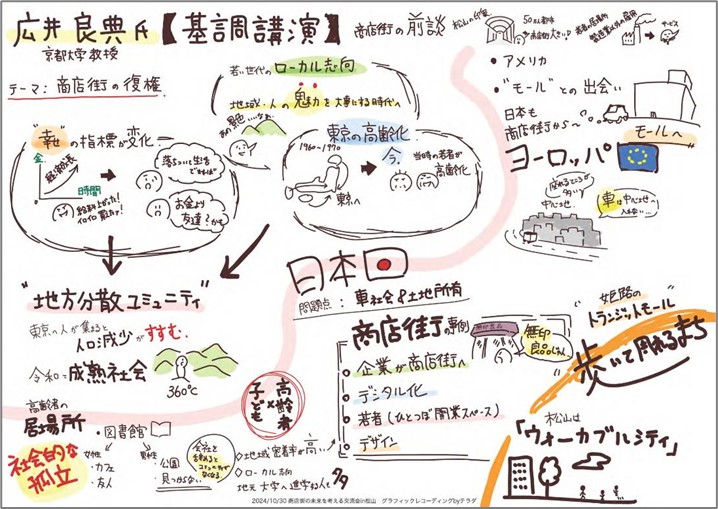 広井 良典 氏【基調講演】
京都大学教授
テーマ：商店街の復権
商店街の前談
松山の印象
50万人都市
若者の居場所
製造業以外の雇用
サービス
若い世代のローカル志向
地域・人の魅力を大事にする時代へ
"幸せ"の指標が変化
金
経済成長
時間
給料上がった!
イロイロ買おう!
落ちついた生活
できれば
お金より
友達?かも
東京の高齢化
1960〜1970
東京へ
今、
当時の若者が
高齢化
・アメリカ
・"モール"との出会い
日本も
商店街から〜
モールへ
ヨーロッパ
座れるところが
多い
中心地
車は中心地へ
入れない…
"地方分散コミュニティ"
東京へ人が集まると
人口減少がすすむ.
令和=成熟社会
360℃
日本
問題点：車社会&土地所有
商店街の事例
無印良品
無印
良品さん
企業が商店街へ
デジタル化
若者(ひとつぼ開業スペース)
デザイン
"姫路の
トランジットモール"
歩いて周れるまち
松山は
「ウォーカブルシティ」
高齢者の
居場所
社会的な
孤立
・図書館
女性
・カフェ
・友人
男性
・公園
・見つからない
会社を
辞めると
コミュニティが
なくなる
高齢者
×
子ども
◇地域密着率が高い
◇ローカル志向
地元大学へ進学する人も
多々
2024/10/30 商店街の未来を考える交流会in松山　グラフィックレコーディングbyテラダ